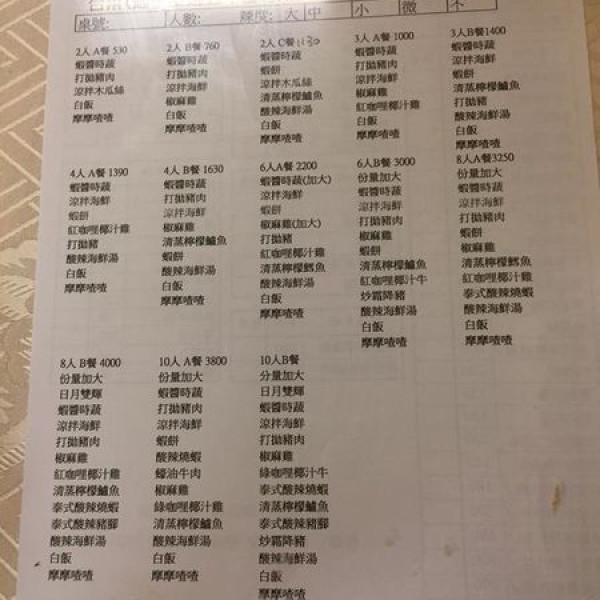 桌號: 人數: 辣度: 大 中 小 微 不
2人 A餐 530
蝦醬時蔬
打拋豬肉
涼拌木瓜絲
白飯
摩摩喳喳
2人 B餐 760
蝦醬時蔬
打拋豬肉
涼拌海鮮
椒麻雞
白飯
摩摩喳喳
2人 C餐 1130
蝦醬時蔬
蝦餅
涼拌木瓜絲
清蒸檸檬鱸魚
酸辣海鮮湯
白飯
摩摩喳喳
3人 A餐 1000
蝦醬時蔬
打拋豬肉
涼拌海鮮
椒麻雞
紅咖哩椰汁雞
白飯
摩摩喳喳
3人 B餐1400
蝦醬時蔬
涼拌海鮮
蝦餅
清蒸檸檬鱸魚
打拋豬
酸辣海鮮湯
白飯
摩摩喳喳
4人 A餐 1390
蝦醬時蔬
涼拌海鮮
蝦餅
紅咖哩椰汁雞
打拋豬
酸辣海鮮湯
白飯
摩摩喳喳
4人 B餐 1630
蝦醬時蔬
打拋豬肉
涼拌海鮮
椒麻雞
清蒸檸檬鱸魚
蝦餅
酸辣海鮮湯
白飯
摩摩喳喳
6人A餐 2200
蝦醬時蔬(加大)
涼拌海鮮
蝦餅
椒麻雞(加大)
打拋豬
紅咖哩椰汁雞
清蒸檸檬鱈魚
酸辣海鮮湯
白飯
摩摩喳喳
6人B餐 3000
份量加大
蝦醬時蔬
涼拌海鮮
打拋豬肉
椒麻雞
蝦餅
清蒸檸檬鱸魚
紅咖哩椰汁牛
炒霜降豬
酸辣海鮮湯
白飯
摩摩喳喳
8人 A餐3250
份量加大
蝦醬時蔬
涼拌海鮮
打拋豬肉
蝦餅
椒麻雞
清蒸檸檬鱸魚
紅咖哩椰汁雞
泰式酸辣燒蝦
酸辣海鮮湯
白飯
摩摩喳喳
8人 B餐 4000
份量加大
日月雙輝
蝦醬時蔬
涼拌海鮮
打拋豬肉
椒麻雞
紅咖哩椰汁雞
清蒸檸檬鱸魚
泰式酸辣燒蝦
泰式酸辣豬腳
酸辣海鮮湯
白飯
摩摩喳喳
10人 A餐 3800
份量加大
蝦醬時蔬
打拋豬肉
涼拌海鮮
蝦餅
酸辣燒蝦
蠔油牛肉
椒麻雞
綠咖哩椰汁雞
清蒸檸檬鱸魚
酸辣海鮮湯
白飯
摩摩喳喳
10人B餐
分量加大
日月雙輝
蝦醬時蔬
涼拌海鮮
打拋豬肉
椒麻雞
綠咖哩椰汁牛
泰式酸辣燒蝦
清蒸檸檬鱸魚
泰式酸辣豬腳
炒霜降豬
酸辣海鮮湯
白飯
摩摩喳喳